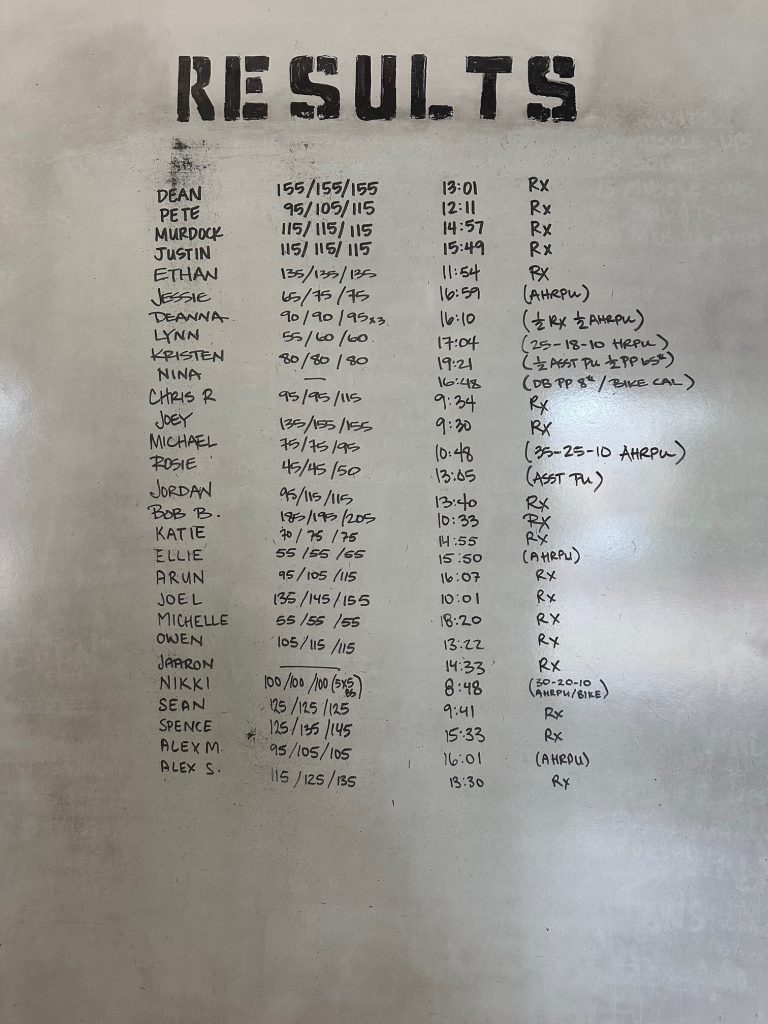 RESULTS
DEAN 155/155/155 13:01 Rx
PETE 95/105/115 12:11 Rx
MURDOCK 115/115/115 14:57 Rx
JUSTIN 115/115/115 15:49 Rx
ETHAN 135/135/135 11:54 Rx
JESSIE 65/75/75 16:59 (AHRPU)
DEANNA 90/90/95x3 16:10 (½ Rx ½ AHRPU)
LYNN 55/60/60 17:04 (25-18-10 HRPU)
KRISTEN 80/80/80 19:21 (½ ASST PU ½ PP 65#)
NINA — 16:48 (DB PP 8#/BIKE CAL)
CHRIS R 95/95/115 9:34 Rx
JOEY 135/155/155 9:30 Rx
MICHAEL 75/75/95 10:48 (35-25-10 AHRPU)
ROSIE 45/45/50 13:05 (ASST PU)
JORDAN 95/115/115 13:40 Rx
BOB B. 185/195/205 10:33 Rx
KATIE 70/75/75 14:55 Rx
ELLIE 55/55/55 15:50 (AHRPU)
ARUN 95/105/115 16:07 Rx
JOEL 135/145/155 10:01 Rx
MICHELLE 55/55/55 18:20 Rx
OWEN 105/115/115 13:22 Rx
JAARON — 14:33 Rx
NIKKI 100/100/100 (5x5 BS) 8:48 (30-20-10 AHRPU/BIKE)
SEAN 125/125/125 9:41 Rx
SPENCE 125/135/145 15:33 Rx
ALEX M. 95/105/105 16:01 (AHRPU)
ALEX S. 115/125/135 13:30 Rx